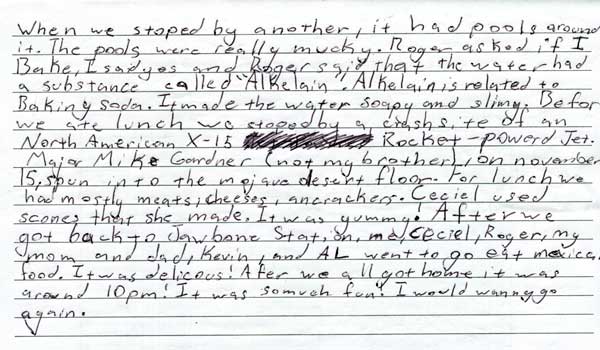 When we stoped by another, it had pools around
it. The pools were really mucky. Roger asked if I
Bake, I said yes and Roger said that the water had
a substance called "Alkelain". Alkelain is related to
Baking soda. It made the water soapy and slimy. Befor
we ate lunch we stoped by a crash site of an
North American X-15 Rocket-powerd Jet.
Major Mike Gardner (not my brother), on november
15, spun into the mojave desert floor. For lunch we
had mostly meats, cheeses, an crackers. Ceciel used
scones that she made. It was yummy! After we
got back to Jawbone Station, me, Ceciel, Roger, my
mom and dad, Kevin, and AL went to go eat mexican
food. It was delicous! Afer we all got home it was
around 10pm! It was so much fun! I would wanny go
again.